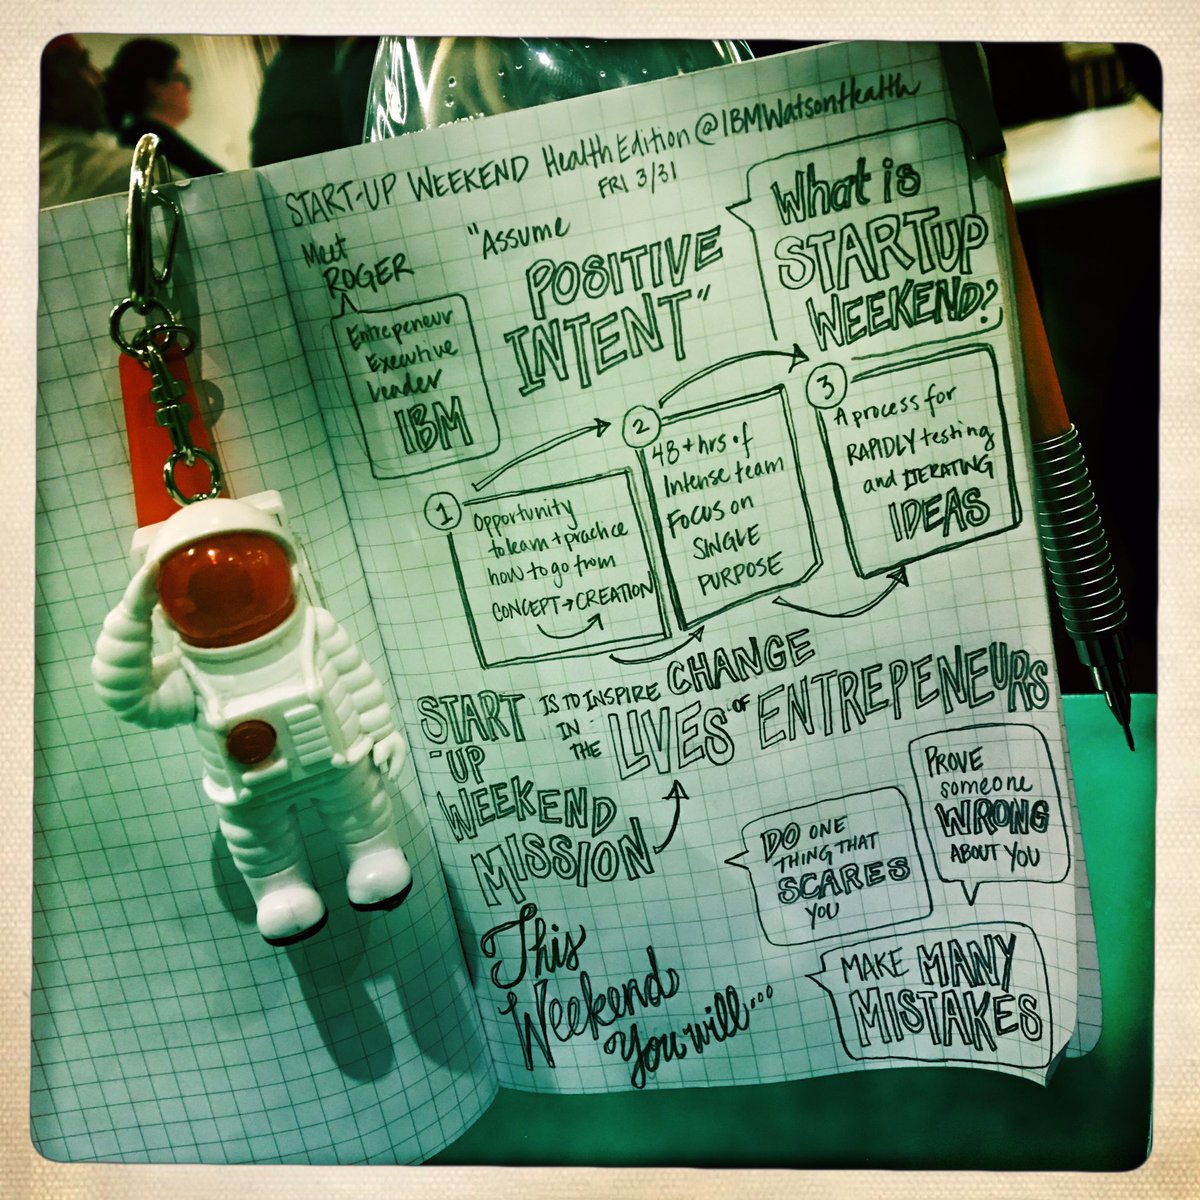 START-UP WEEKEND Health Edition @IBMWatsonHealth
FRI 3/31
Meet
ROGER
Entrepeneur
Executive
Leader
IBM
"Assume
POSITIVE
INTENT"
What is
STARTUP
WEEKEND?
1
Opportunity
to learn + practice
how to go from
CONCEPT → CREATION
2
48 + hrs of
Intense team
Focus on
SINGLE
PURPOSE
3
A process for
RAPIDLY testing
and ITERATING
IDEAS
START
-UP
WEEKEND
MISSION
IS TO INSPIRE CHANGE
IN
THE
LIVES OF ENTREPENEURS
This
Weekend
You will...
DO ONE
THING THAT
SCARES
YOU
PROVE
someone
WRONG
ABOUT YOU
MAKE MANY
MISTAKES